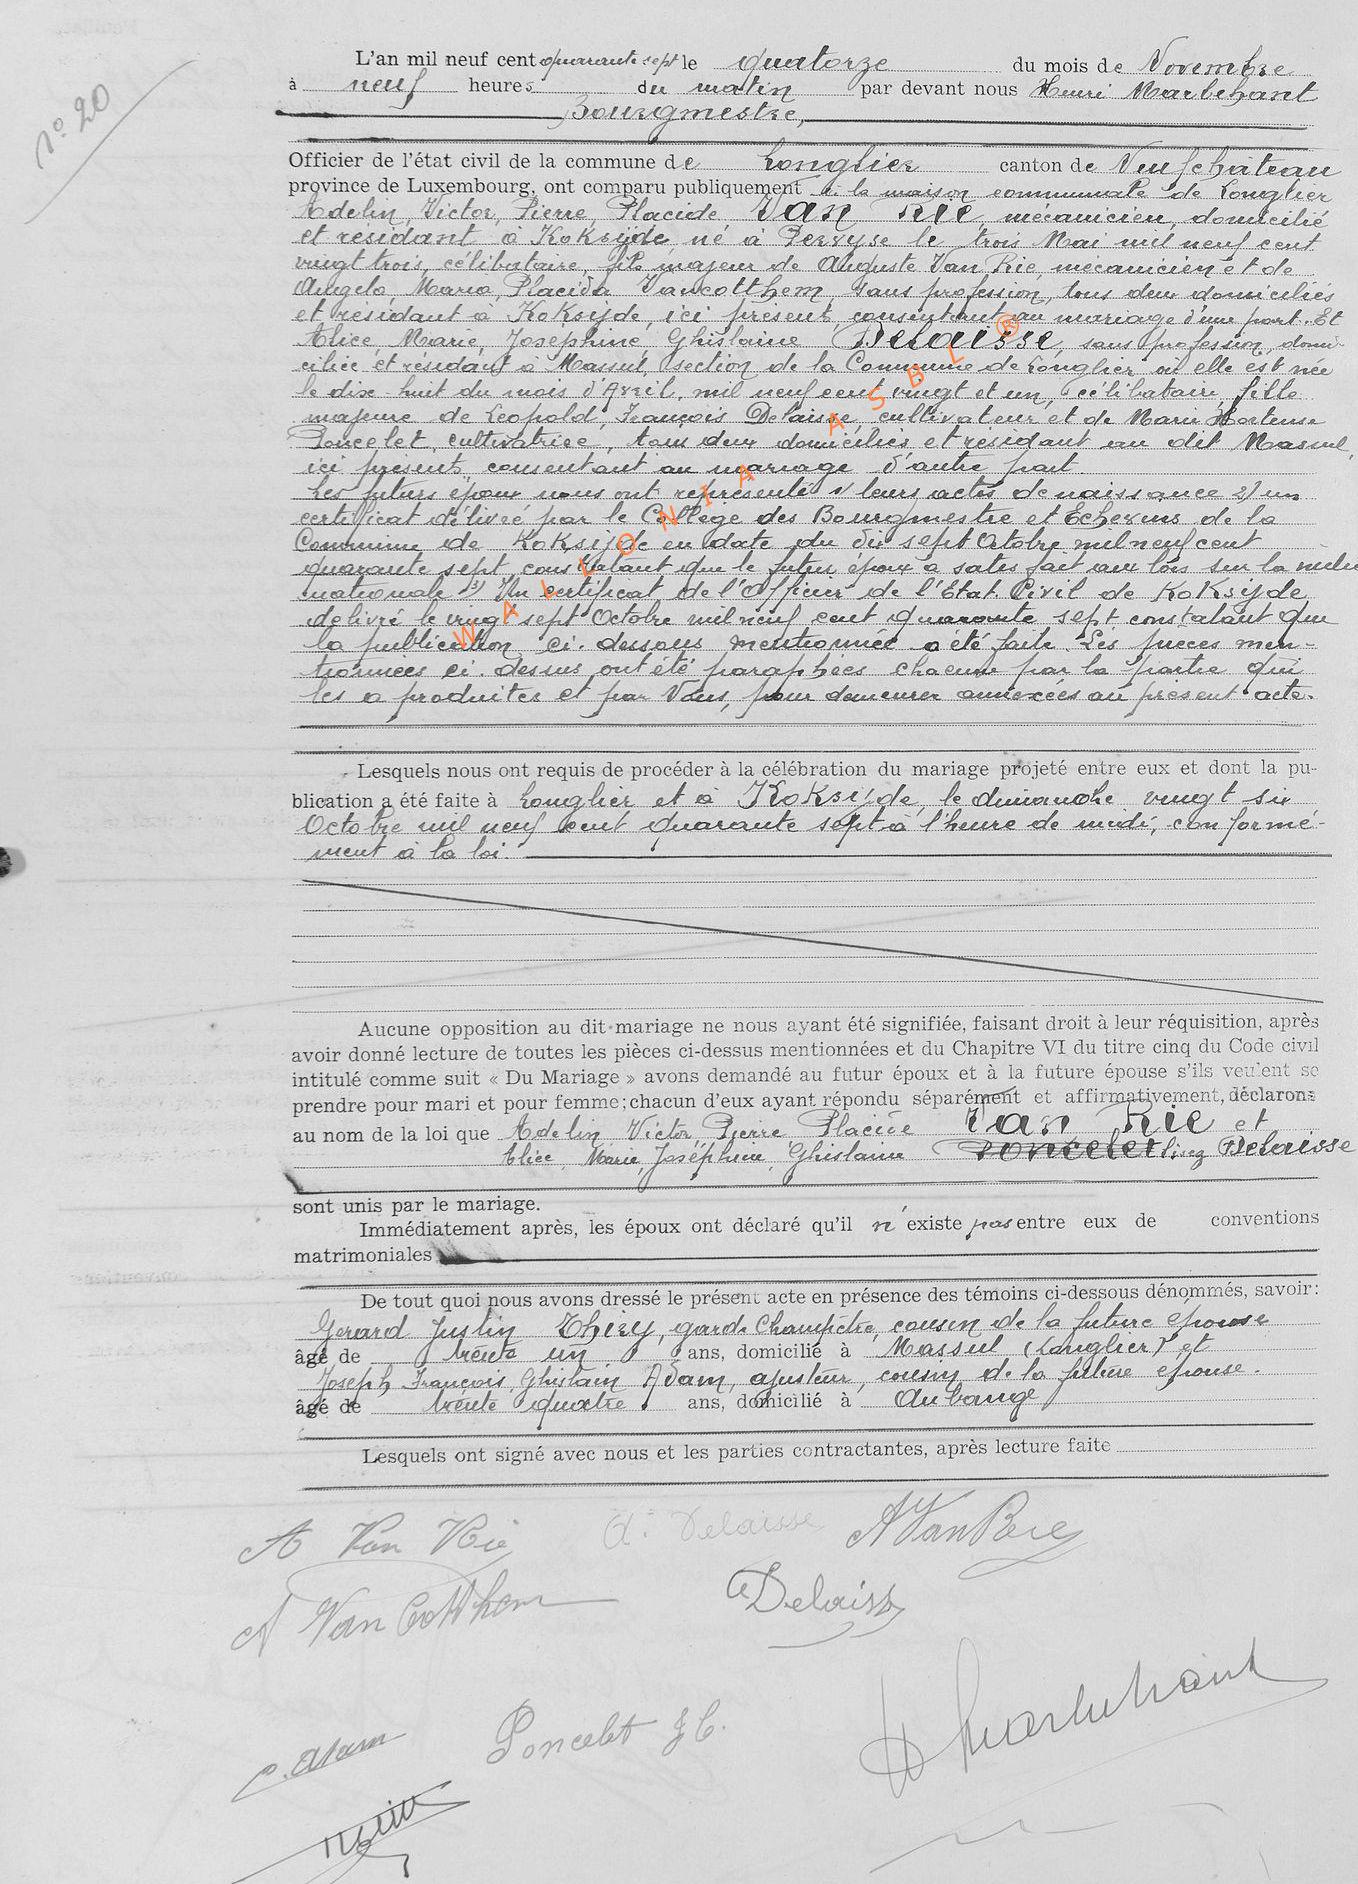 N° 20
L'an mil neuf cent quarante sept le quatorze du mois de Novembre
à neuf heures du matin par devant nous Henri Marbehant
Bourgmestre,
Officier de l'état civil de la commune de Longlier canton de Neufchâteau
province de Luxembourg, ont comparu publiquement à la maison communale de Longlier
Adelin, Victor, Pierre, Placide Van Rie, mécanicien, domicilié
et résidant à Koksijde, né à Pervyse le trois Mai mil neuf cent
vingt trois, célibataire, fils majeur de Auguste Van Rie, mécanicien et de
Angela, Maria, Placida Vancotthem, sans profession, tous deux domiciliés
et résidant à Koksijde, ici présent, consentant au mariage d'une part. Et
Alice, Marie, Joséphine, Ghislaine Delaisse, sans profession, domi-
ciliée et résidant à Massul, section de la Commune de Longlier où elle est née
le dix-huit du mois d'Avril, mil neuf cent vingt et un, célibataire, fille
majeure de Léopold, François Delaisse, cultivateur et de Marie Hortense
Poncelet, cultivatrice, tous deux domiciliés et résidant au dit Massul,
ici présents, consentant au mariage d'autre part.
Les futurs époux nous ont représenté 1/ leurs actes de naissance 2/ un
certificat délivré par le Collège des Bourgmestre et Echevins de la
Commune de Koksijde en date du dix sept Octobre mil neuf cent
quarante sept, constatant que le futur époux a satisfait aux lois sur la milice
nationale 3) Un certificat de l'Officier de l'Etat Civil de Koksijde
délivré le vingt sept Octobre mil neuf cent quarante sept constatant que
la publication ci-dessous mentionnée a été faite. Les pièces men-
tionnées ci-dessus ont été paraphées chacune par la partie qui
les a produites et par Nous, pour demeurer annexées au présent acte.
Lesquels nous ont requis de procéder à la célébration du mariage projeté entre eux et dont la pu-
blication a été faite à Longlier et à Koksijde, le dimanche vingt six
Octobre mil neuf cent quarante sept à l'heure de midi, conformé-
ment à la loi.
Aucune opposition au dit mariage ne nous ayant été signifiée, faisant droit à leur réquisition, après
avoir donné lecture de toutes les pièces ci-dessus mentionnées et du Chapitre VI du titre cinq du Code civil
intitulé comme suit « Du Mariage » avons demandé au futur époux et à la future épouse s'ils veulent se
prendre pour mari et pour femme; chacun d'eux ayant répondu séparément et affirmativement, déclarons
au nom de la loi que Adelin, Victor, Pierre, Placide Van Rie et
Alice, Marie, Joséphine, Ghislaine Poncelet lisez Delaisse
sont unis par le mariage.
Immédiatement après, les époux ont déclaré qu'il n'existe pas entre eux de conventions
matrimoniales
De tout quoi nous avons dressé le présent acte en présence des témoins ci-dessous dénommés, savoir:
Gerard Justin Thiry, garde Champêtre, cousin de la future épouse
âgé de trente un ans, domicilié à Massul (Longlier) et
Joseph François, Ghislain Adam, ajusteur, cousin de la future épouse.
âgé de trente quatre ans, domicilié à Aubange
Lesquels ont signé avec nous et les parties contractantes, après lecture faite
A Van Rie A. Delaisse A Van Rie
A Van Cotthem Delaisse
Adam Poncelet H. Marbehant
WALLONIA ASBL ®